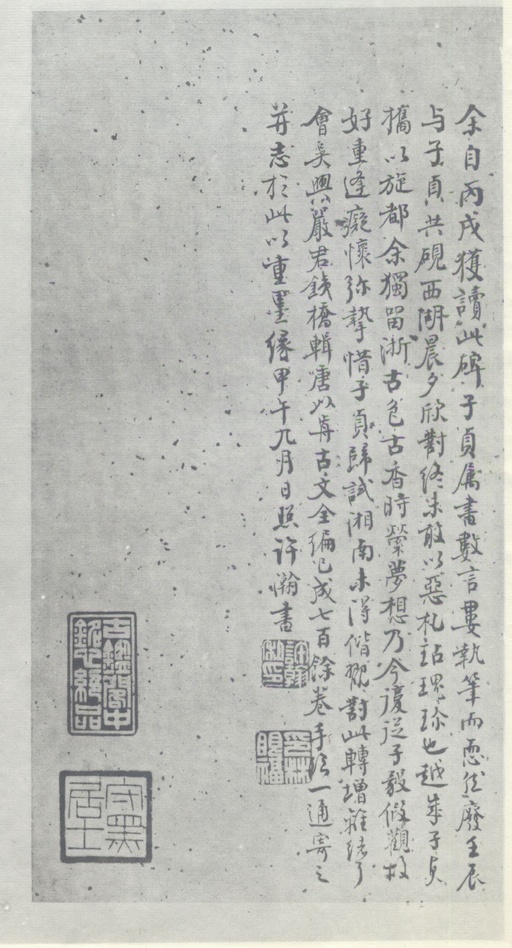 余自丙戌獲讀此碑子貞屬書數言屢執筆而恧然廢壬辰
与子貞共硯西湖晨夕欣對終未敢以惡札玷瑰珎也越年子貞
攜以旋都余獨留浙古色古香時縈夢想乃今復從子毅假觀故
好重逢癡懷弥摯惜子貞歸試湘南未得偕觀對此轉增離緒
會吳興嚴君銕橋輯唐以前古文全編已成七百餘卷手 一通寄之
并志於此以重墨緣甲午九月日照許瀚書
許瀚
印林
守墨居士